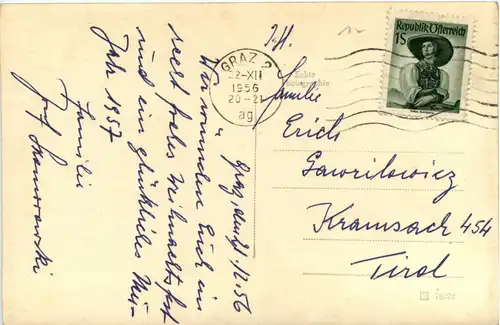 Graz, den 21./12.56
Wir wünschen Euch ein
recht frohes Weihnachtsfest
und ein glückliches Neu-
Jahr 1957
Familie
GRAZ 2
22-XII
1956
20-21
ag
Republik Österreich
1S
Echte
Photographie
Familie
Erich
Gawrilowicz
Kramsach 454
Tirol